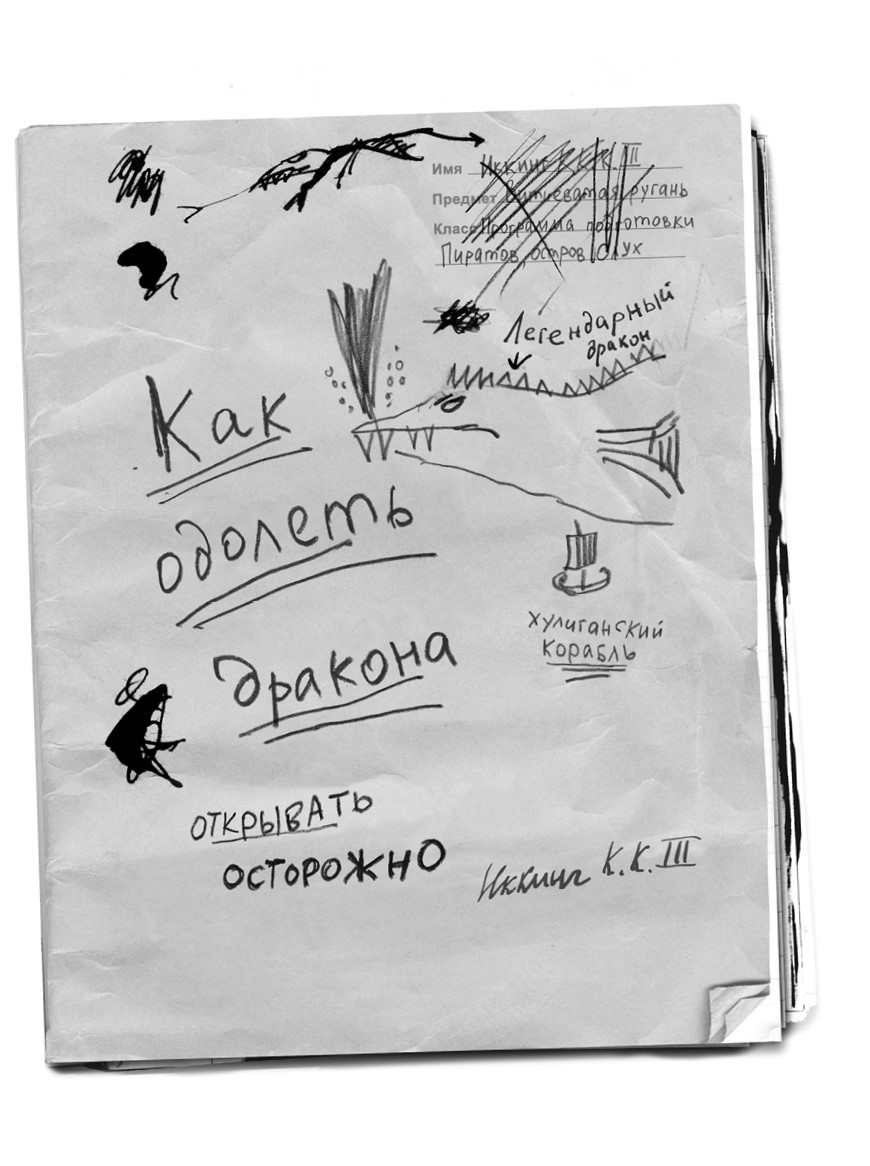 Имя Иккинг К.К. III
Предмет Витиеватая ругань
Класс Программа подготовки
Пиратов, остров Олух
Легендарный
дракон
Как
одолеть
дракона
хулиганский
корабль
открывать
осторожно
Иккинг К.К. III